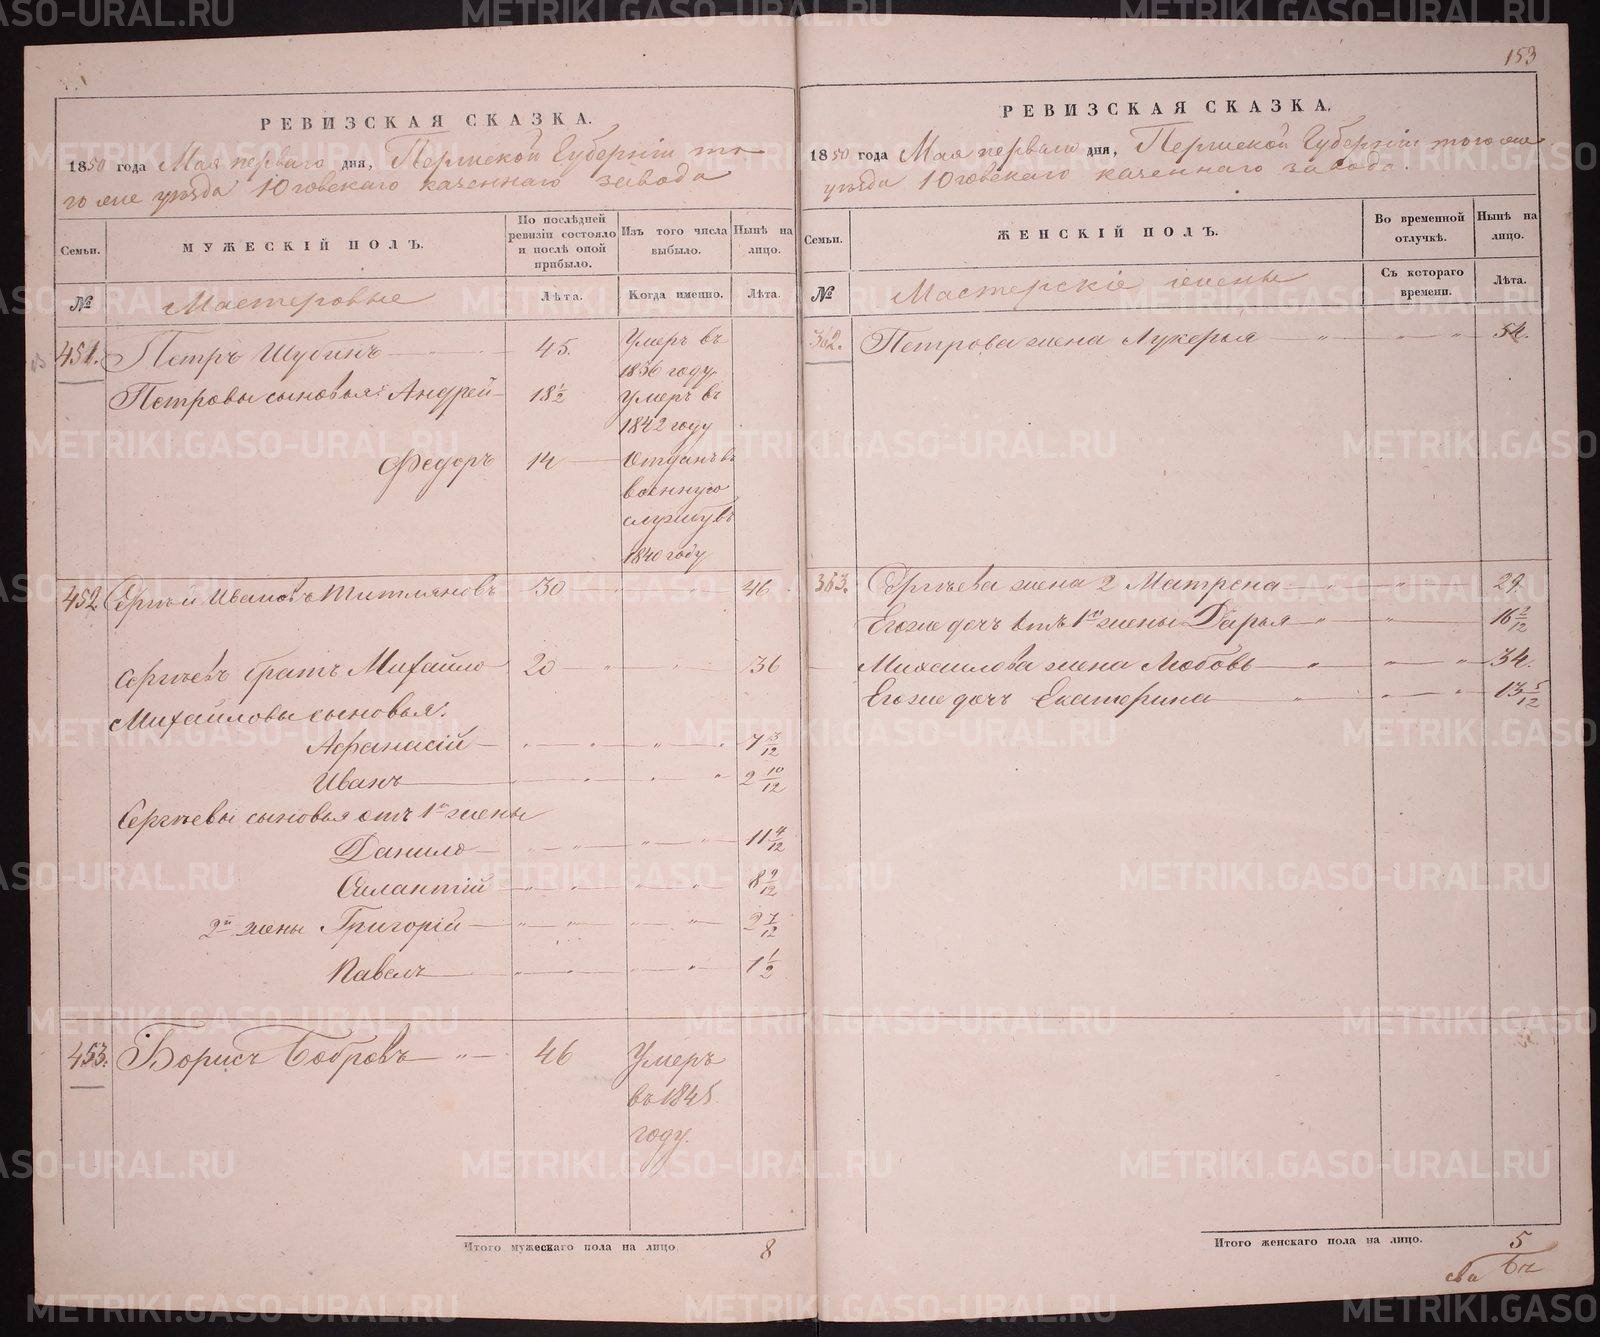 153
РЕВИЗСКАЯ СКАЗКА.
1850 года Мая перваго дня, Пермской Губерніи то
го же уѣзда Юговскаго казеннаго завода
Семьи.
МУЖЕСКІЙ ПОЛЪ.
По послѣдней ревизіи состояло и послѣ оной прибыло.
Изъ того числа выбыло.
Нынѣ на лицо.
№
Мастеровые
Лѣта.
Когда именно.
Лѣта.
451. Петръ Шубинъ 45. Умеръ въ
1836 году
Петровы сыновья: Андрей 18½ Умеръ въ
1842 году
Федоръ 14 Отданъ въ
военную
службу въ
1840 году
452 Сергѣй Ивановъ 30 46
Сергѣевъ братъ Михайло 20 36
Михайловы сыновья:
Афанасій 7 3/12
Иванъ 2 10/12
Сергѣевы сыновья отъ 1й жены
Данило 11 4/12
Силантій 8 9/12
2й жены Григорій 2 7/12
Павелъ 1½
453. Борисъ Бобровъ 46 Умеръ
въ 1845
году.
Итого мужескаго пола на лицо 8
РЕВИЗСКАЯ СКАЗКА.
1850 года Мая перваго дня, Пермской Губерніи того же
уѣзда Юговскаго казеннаго завода.
Семьи.
ЖЕНСКІЙ ПОЛЪ.
Во временной отлучкѣ.
Нынѣ на лицо.
№
Мастерскіе жены
Съ котораго времени.
Лѣта.
Петрова жена Лукерья 54.
353. Сергѣева жена 2 Матрена 29.
Его же дочь отъ 1й жены Дарья 16 2/12
Михаилова жена Любовь 34.
Его же дочь Екатерина 13 5/12
Итого женскаго пола на лицо. 5
METRIKI.GASO-URAL.RU